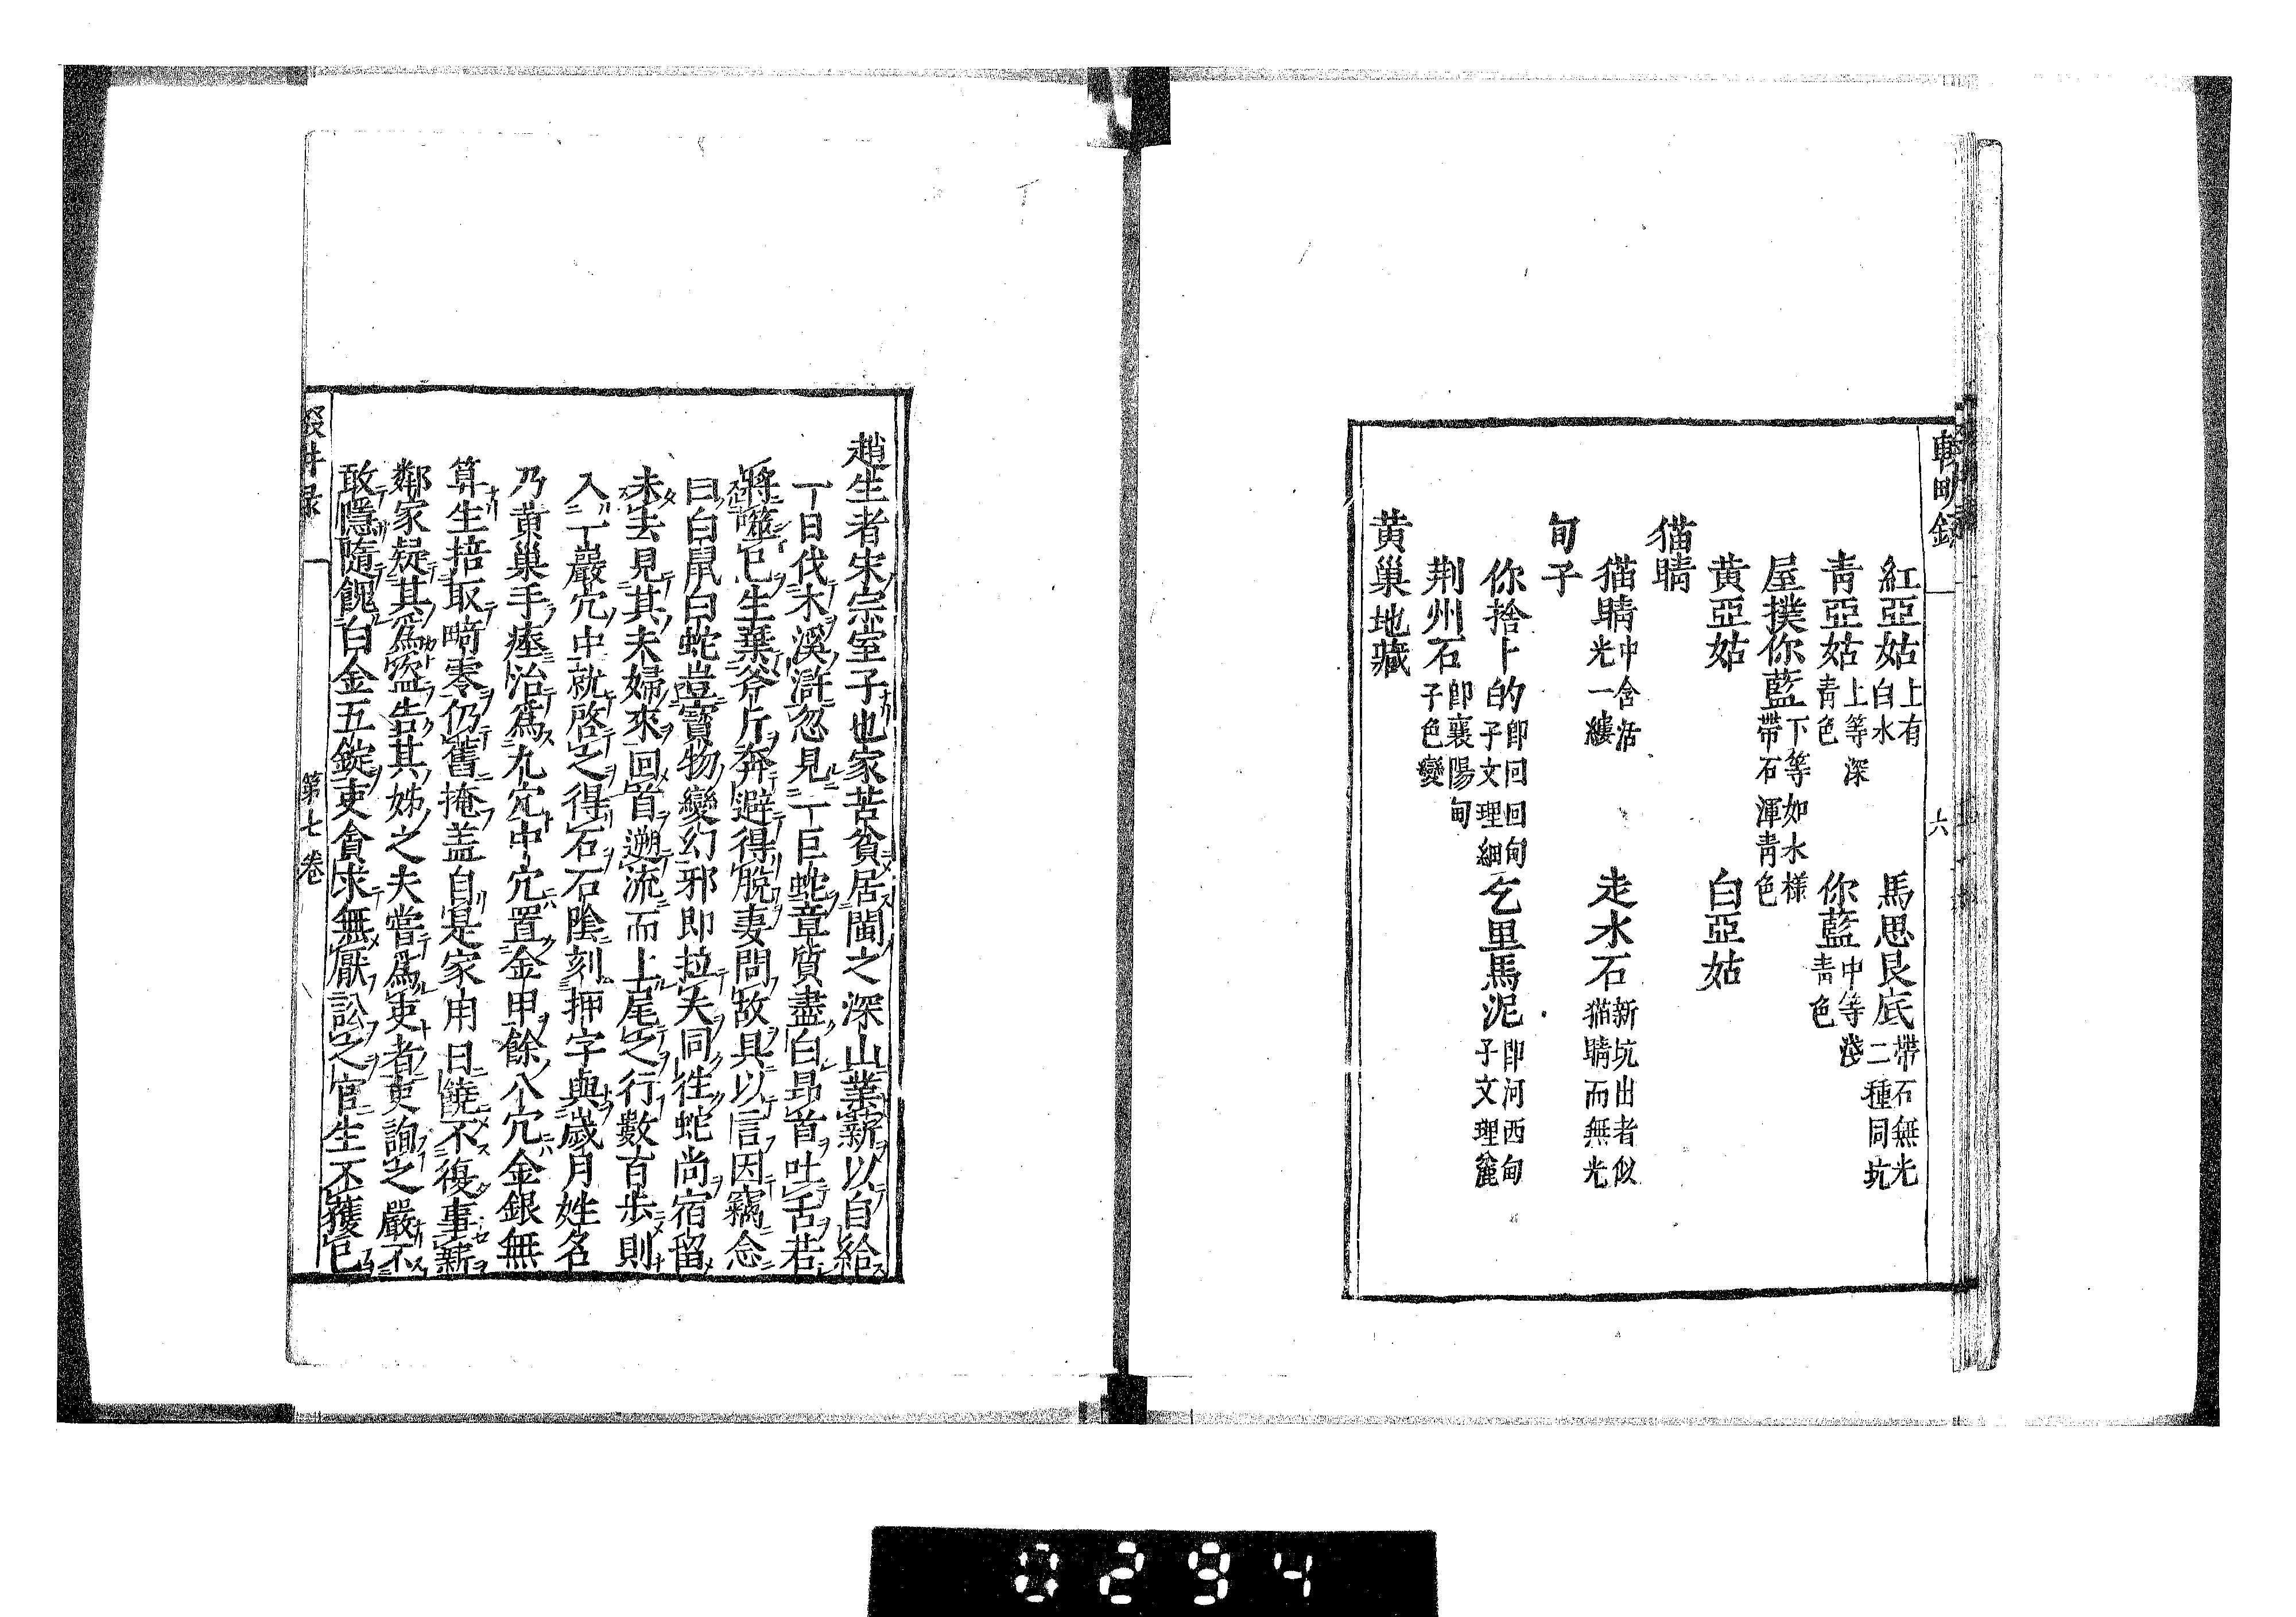 輟畊錄
六
紅亞姑上有白水　馬思艮底帶石無光二種同坑
青亞姑上等深青色　你藍中等淺青色
屋撲你藍下等如水樣帶石渾青色
黄亞姑　白亞姑
猫睛
猫睛中含活光一縷　走水石新坑出者似猫睛而無光
甸子
你捨卜的即回回甸子文理細　乞里馬泥即河西甸子文理麄
荆州石即襄陽甸子色變
黄巢地藏
趙生者宋宗室子也家苦貧居閩之深山業薪以自給
一日伐木溪滸忽見一巨蛇章質盡白昂首吐舌若
將噬已生棄斧斤奔避得脱妻問故具以言因竊念
曰白鼠白蛇豈寳物變幻邪即拉夫同徃蛇尚宿留
未去見其夫婦來回首遡流而上尾之行數百歩則
入一巖穴中就啓之得石石陰刻押字與歲月姓名
乃黄巢手瘞治爲九穴中穴置金甲餘八穴金銀無
算生掊取畸零仍舊掩盖自是家用日饒不復事薪
鄰家疑其爲盗告其姊之夫嘗爲吏者吏詢之嚴不
敢隱隨餽白金五錠吏貪求無厭訟之官生不獲已
輟畊录
第七卷
0294